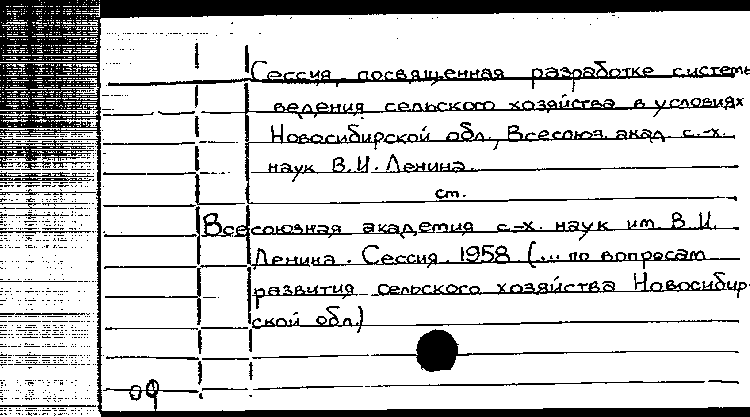 Сессия, посвященная разработке системы
ведения сельского хозяйства в условиях
Новосибирской обл., Всесоюз. акад. с.-х.
наук В.И. Ленина.
ст.
Всесоюзная академия с.-х. наук им. В.И.
Ленина. Сессия. 1958 (... по вопросам
развития сельского хозяйства Новосибир-
ской обл.)